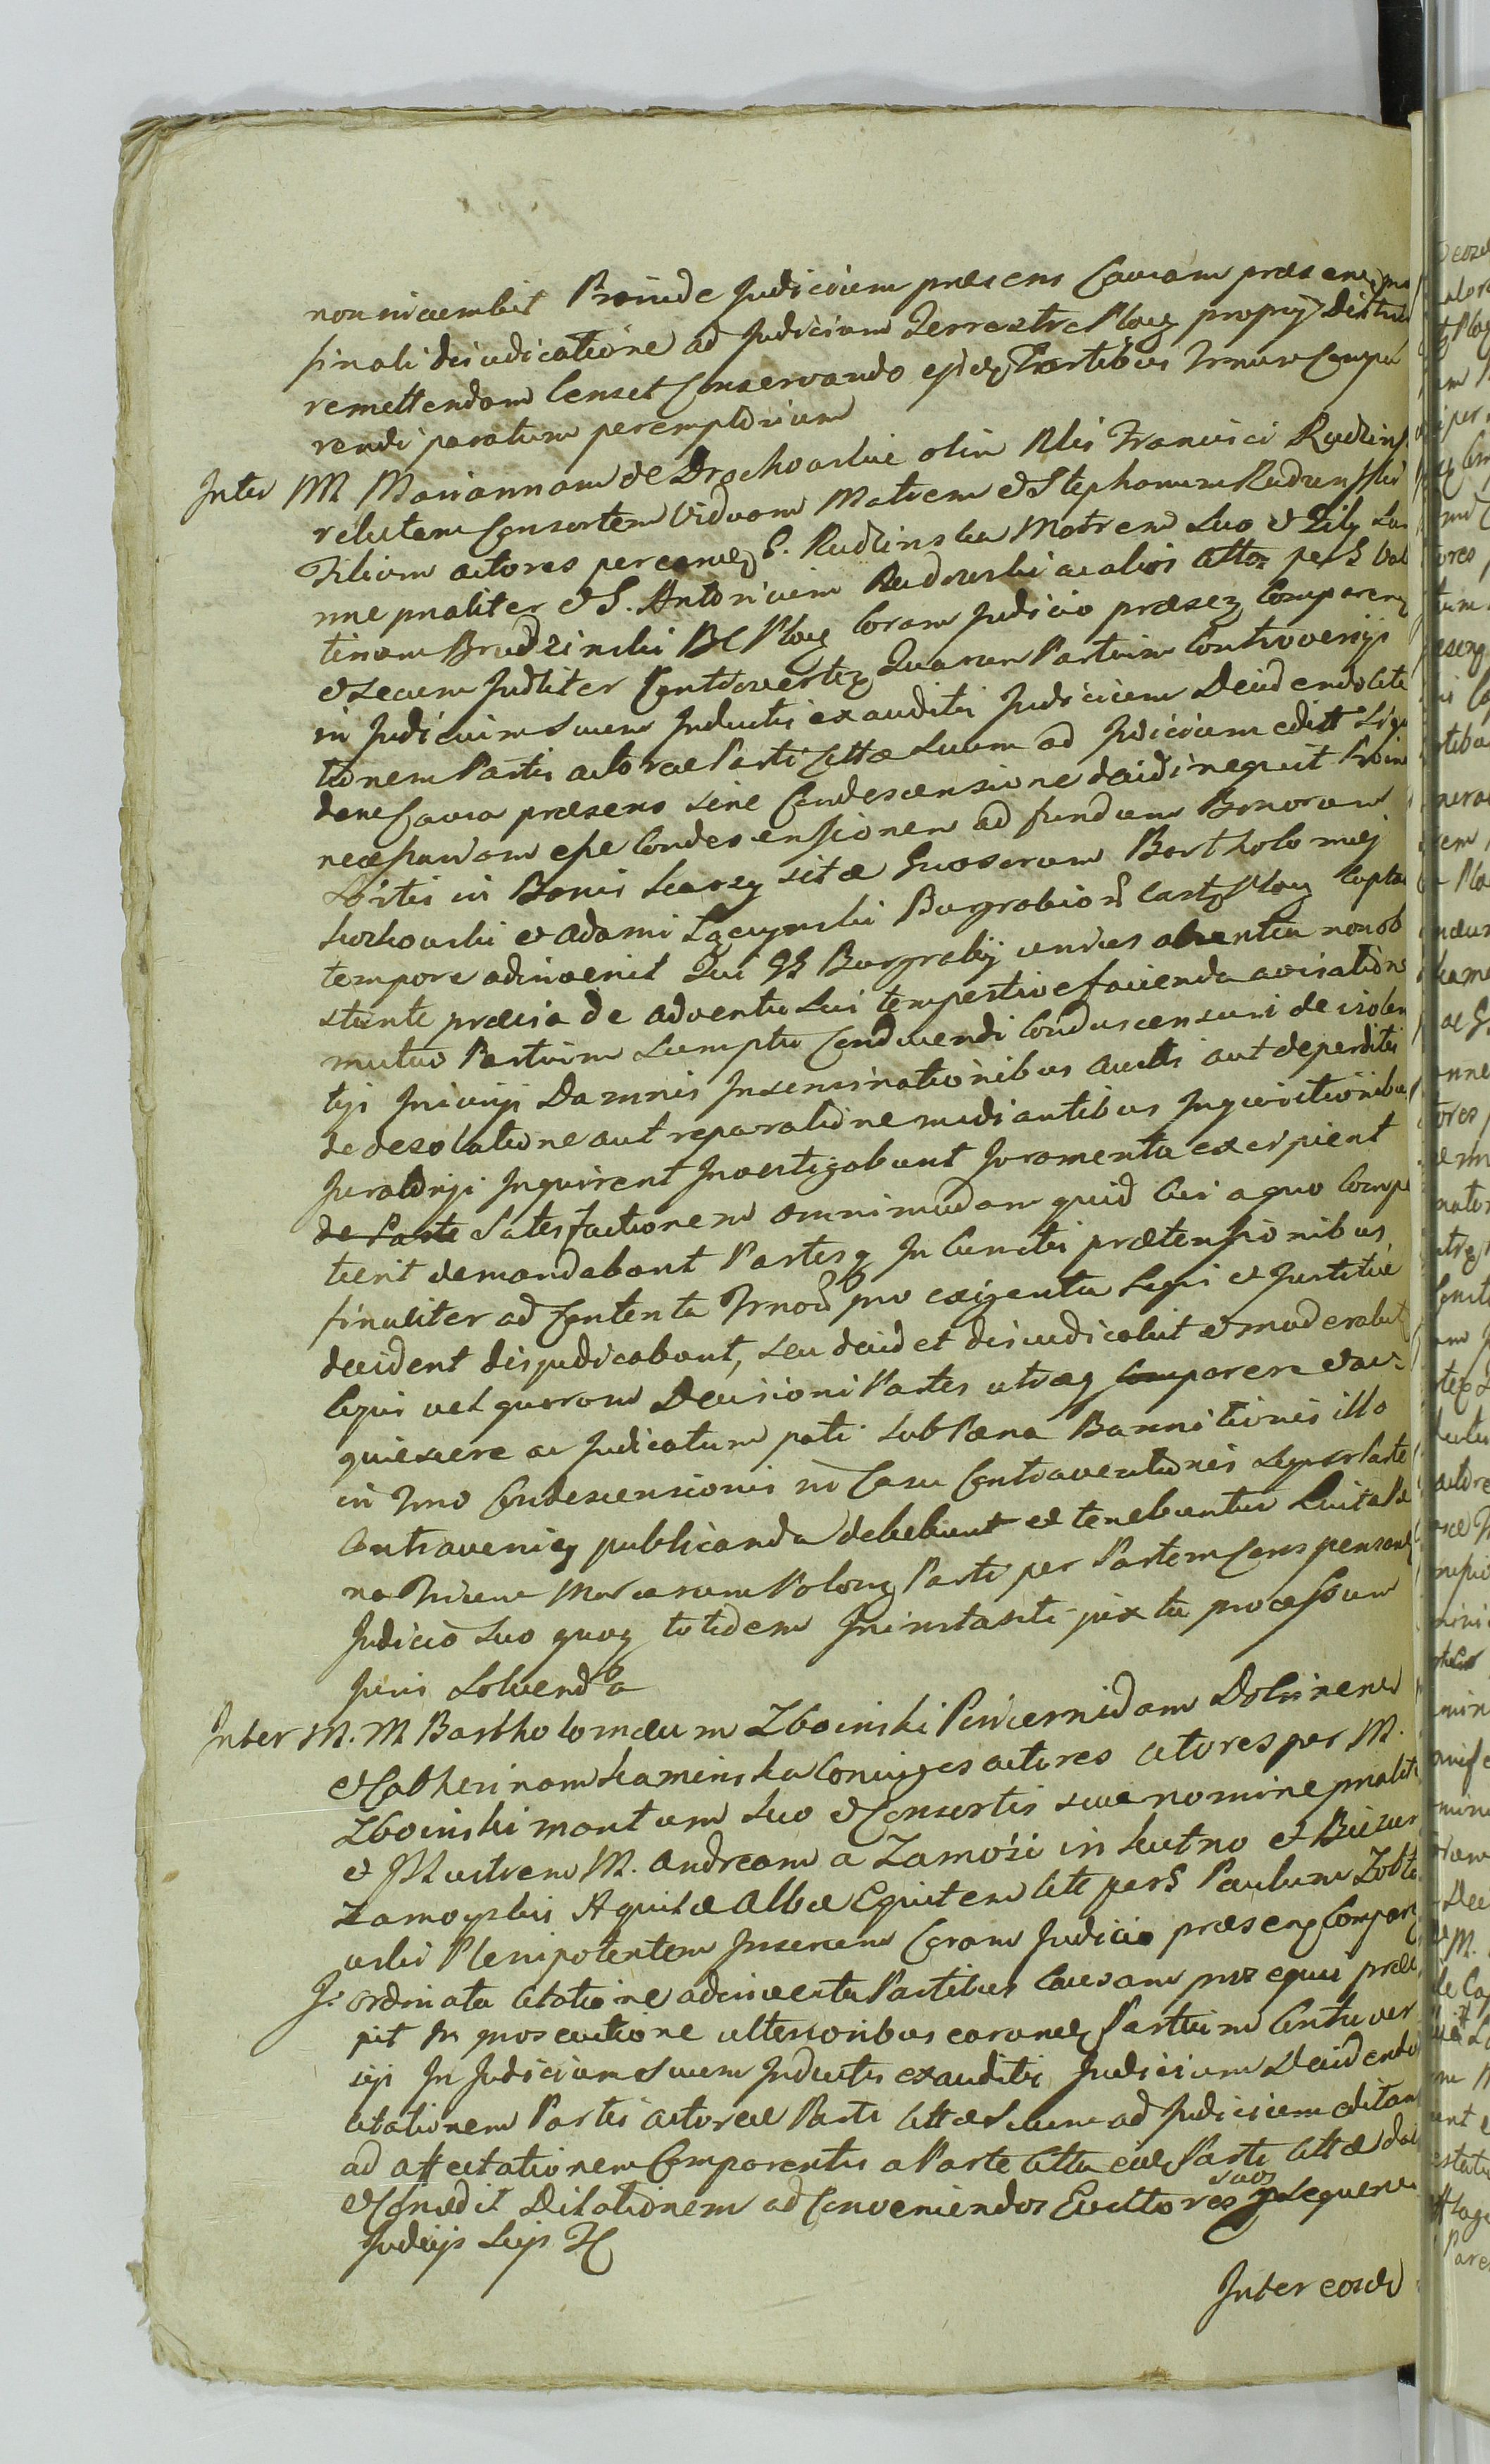 non incumbit Proinde Judicium præsens Causam præsenz pro
finali dijudicatione ad Judicium Terrestre Plocz proprij Districtus
remittendam Censet Conservando ejsdz Partibus Trnum Compa
rendi paratum peremptorium
Inter M Mariannam de Drochowskie olim Nlis Francisci Rudzins
relictam Consortem Viduam Matrem et Stephanum Rudzinski
Filium actores per eandz G. Rudzinska Matrem suo et Filij
nne pnaliter et G. Antonium Rudowski ac alios citto per G Val
tinam Brudzinski BC Plocz Coram Judicio præsez Comparenz
et secum Judliter Controvertez Quarum Partium Controversijs
in Judicium suum Inductis exauditis Judicium Decidendo cita
tionem Partis actoreæ Parti Cittæ suum ad Judicium edit
dem Causa præsens sine Condescensione decidi nequit Proin
necessariam esse Condescensionem ad fundum Bonorum
Sortis in Bonis Skarzy sitæ Gnosorum Bartholomæj
Kurkowski et Adami Łączynski Burgrabior Castz Plocz Capta
tempore adinvenit Qui GG Burgrabij unius absentia non ob
stante prævia de adventu sui tempestive facienda avisatione
mutuo Partium sumptu Conducendi Condescensuri de violen
tijs Injurijs Damnis Inseminationibus auctis aut deperditis
de desolatione aut reparatione mediantibus Inquisitionibus
Juratorijs Inquirent Investigabunt Juramenta excipient
de Parte Satisfactionem omnimodam quid Cui a quo Compe
tierit demandabunt Partesq In Cunctis prætensionibus
finaliter ad Contenta Trnod pro exigentia Legis et Justitiæ
decident dijudicabunt, seu decidet dijudicabit et moderabit
Cujus vel quorum Decisioni Partes utræq Comparere et ac
quiescere ac Judicatum pati sub Pæna Bannitionis illo
in Trno Condescensionis in Casu Contraventionis super Parte
Contravenienz publicanda debebunt et tenebuntur Luita Pæ
na Trium Marcarum Polonz Parti per Partem Compensanz
Judicio suo quoq totidem In instanti juxta processum
Juris Solvenda
Inter M. M Bartholomæum Zboinski Pincernidam Dobrinenz
et Catherinam Kaminska Conjuges actores actores per M.
Zboinski maritum suo et Consortis suæ nomine pnaliter
et Illustrem M. Andream a Zamość in Kutno et
Zamoyski Aquilæ Albæ Equitem citt per G Paulum
Plenipotentem Inseren Coram Judicio præsenz Comparenz
J. ordinata citatione adinventa Partibus Causam prosequi præce
pit In prosecutione ulterioribus earundz Partium Controver
sijs In Judicium suum Inductis exauditis Judicium Decidendo
citationem Partis actoreæ Parti Cittæ suum ad Judicium editam
ad affectationem Comparentis a Parte Citta eidz Parti Cittæ
et Concedit Dilationem ad Conveniendos Evictores suos
Judicijs
Inter eosdz